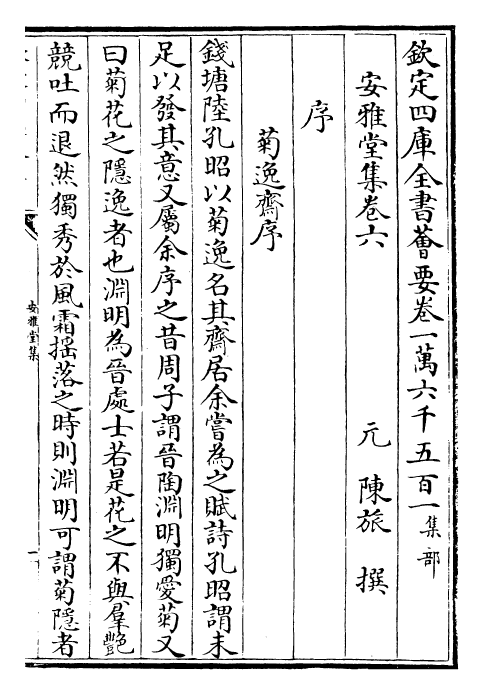 欽定四庫全書薈要卷一萬六千五百一集部
安雅堂集卷六
元 陳旅 撰
序
菊逸齋序
錢塘陸孔昭以菊逸名其齋居余嘗為之賦詩孔昭謂未
足以發其意又屬余序之昔周子謂晉陶淵明獨愛菊又
曰菊花之隱逸者也淵明為晉處士若是花之不與羣艷
競吐而退然獨秀於風霜揺落之時則淵明可謂菊隱者
安雅堂集
一